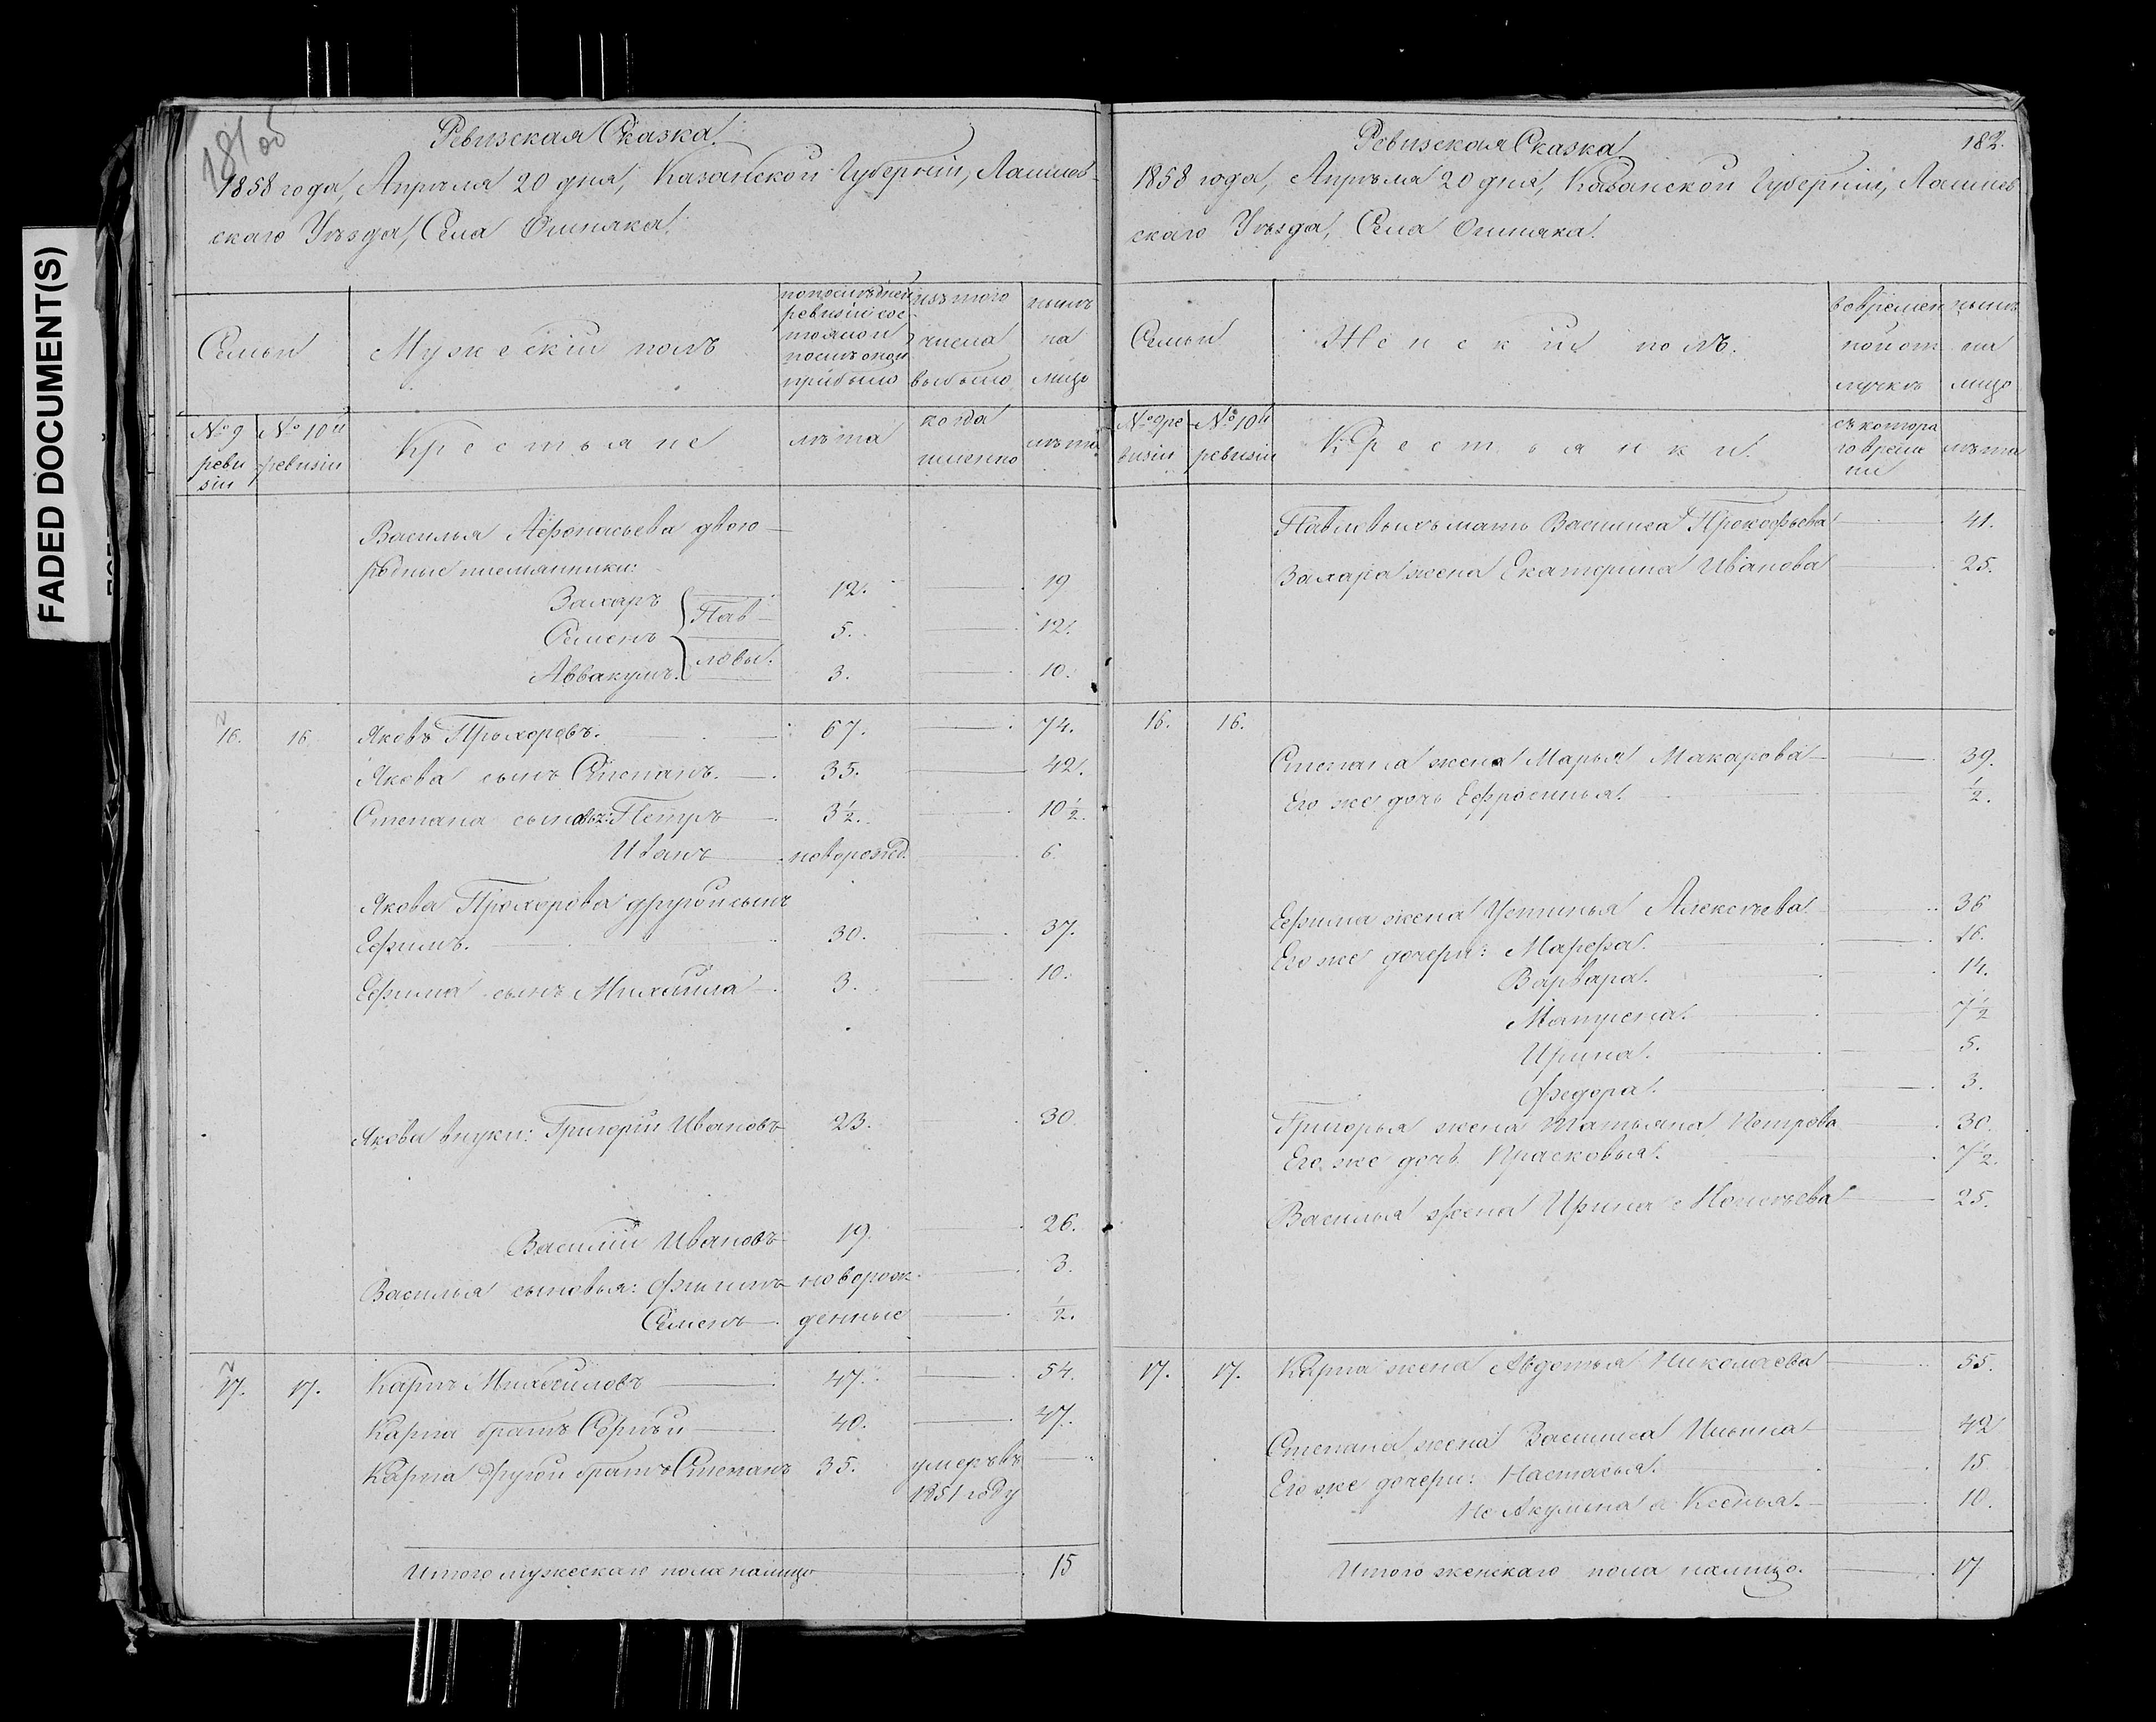 FADED DOCUMENT(S)
181 об
Ревизская Сказка.
1858 года, Апреля 20 дня, Казанской Губерніи, Лаишев-
скаго Уѣзда, Села Ошняка.
Семьи
Мужескій полъ
по последней
ревизіи сос-
тояло и
после оной
прибыло
изъ того
числа
выбыло
нынѣ
на
лицо
№ 9
реви
зіи
№ 10й
ревизіи
Крестьяне
лѣта
когда
именно
лѣта
Василья Афонасьева двою-
родные племянники:
Захаръ { Пав- 12. 19
Семенъ 5. 12.
Аввакумъ. ловы. 3. 10.
16. 16 Яковъ Прохоровъ. 67. 74.
Якова сынъ Степанъ. 35. 42.
Степана сыновья: Петръ 3 1/2. 10 1/2.
Иванъ новорожд. 6.
Якова Прохорова другой сынъ
Ефимъ. 30. 37.
Ефима сынъ Михайла 3. 10.
Якова внуки: Григорій Ивановъ 23. 30.
Василій Ивановъ 19. 26.
Василья сыновья: Филипъ новорож- 3.
Семенъ денные 1/2.
17. 17. Карпъ Михайловъ 47. 54.
Карпа братъ Сергѣй 40. 47.
Карпа другой братъ Степанъ 35. умеръ въ
1851 году
Итого мужескаго пола налицо 15
Ревизская Сказка
182.
1858 года, Апрѣля 20 дня, Казанской Губерніи, Лаишев
скаго Уѣзда, Села Ошняка.
Семьи
Женскій полъ.
во времен
ной от
лучкѣ
нынѣ
на
лицо
№ 9 ре
визіи
№ 10й
ревизіи
Крестьянки.
съ котора
го време
ни
лѣта
Павловыхъ мать Василиса Прокофьева 41.
Захара жена Екатерина Иванова 25.
16. 16.
Степана жена Марья Макарова 39.
Его же дочь Ефросинья. 1/2.
Ефима жена Устинья Алексѣева 36
Его же дочери: Марфа. 16.
Варвара. 14.
Матрена. 7 1/2
Ирина. 5.
Федора. 3.
Григорья жена Татьяна Петрова 30.
Его же дочь Прасковья. 7 1/2.
Василья жена Ирина 25.
17. 17. Карпа жена Авдотья Николаева 55.
Степана жена Василиса Ильина 42
Его же дочери: Настасья. 15
Не Акулина а Ксенья. 10.
Итого женскаго пола налицо. 17